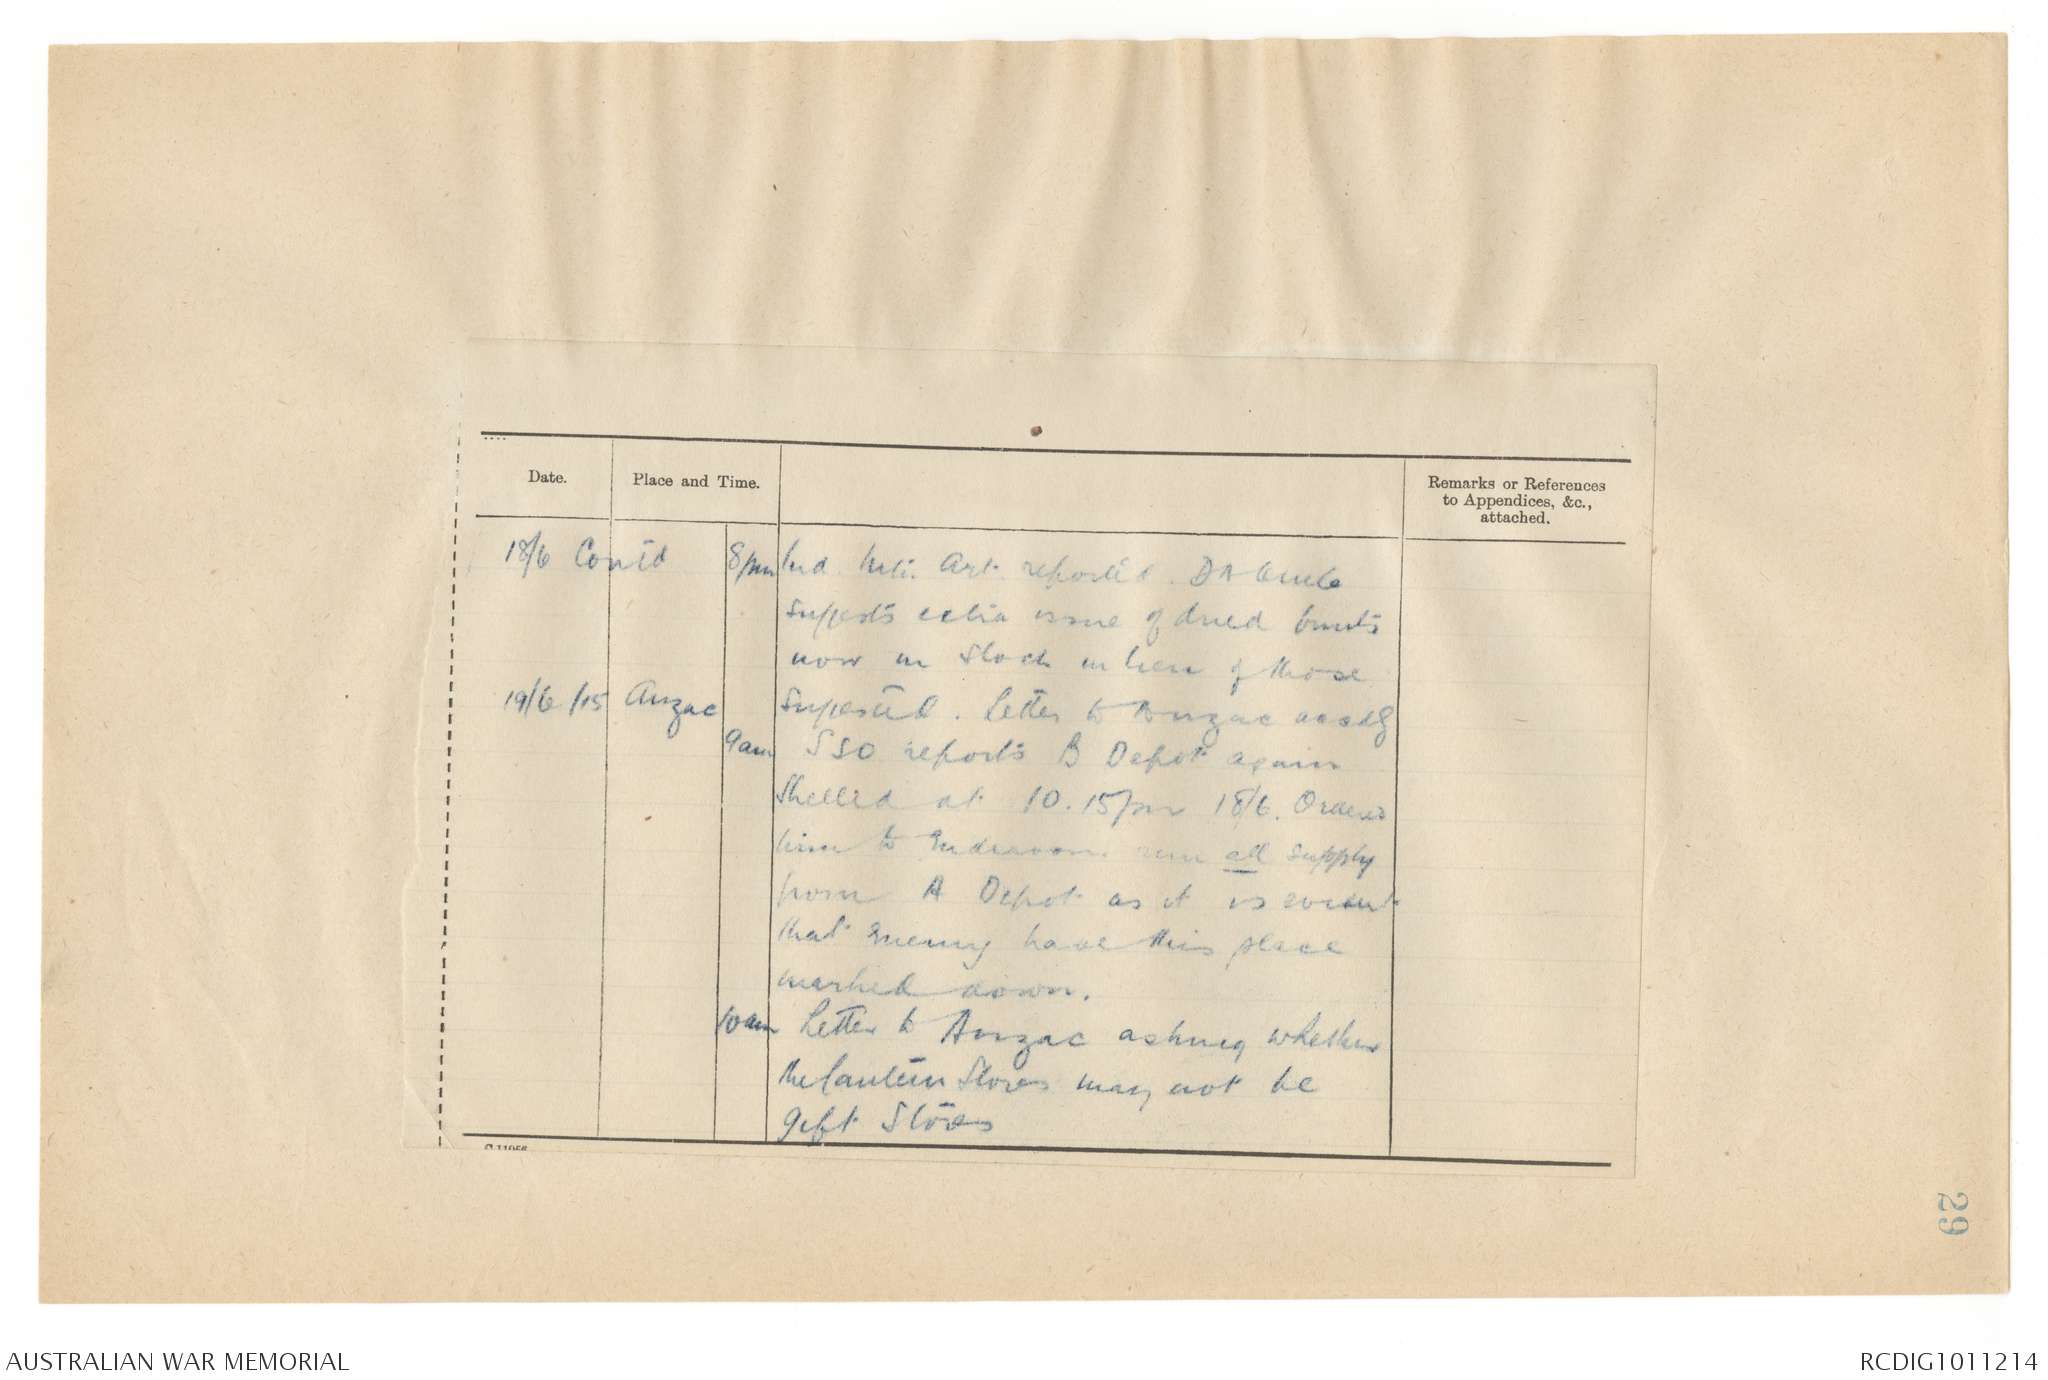 Date.
Place and Time.
Remarks or References
to Appendices, &c.,
attached.
18/6 Contd
8pm Ind Mti. Art reported. DA
suggests extra issue of dried fruits
now in stock in lieu of those
suggested. Letter to Anzac
19/6/15 Anzac
9am SSO reports B Depot again
shelled at 10.15pm 18/6. Ordered
him to Endeavour run all supply
from A Depot as it is evident
that Enemy have this place
marked down.
10am Letter to Anzac asking whether
the Canteen Stores may not be
gift Stores
29
AUSTRALIAN WAR MEMORIAL
RCDIG1011214